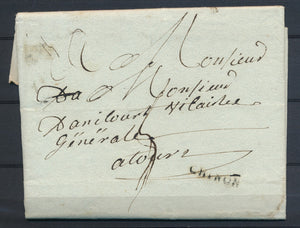 A Monsieur
Monsieur
Danicourt Vicaire
Générale
a tours
CHINON